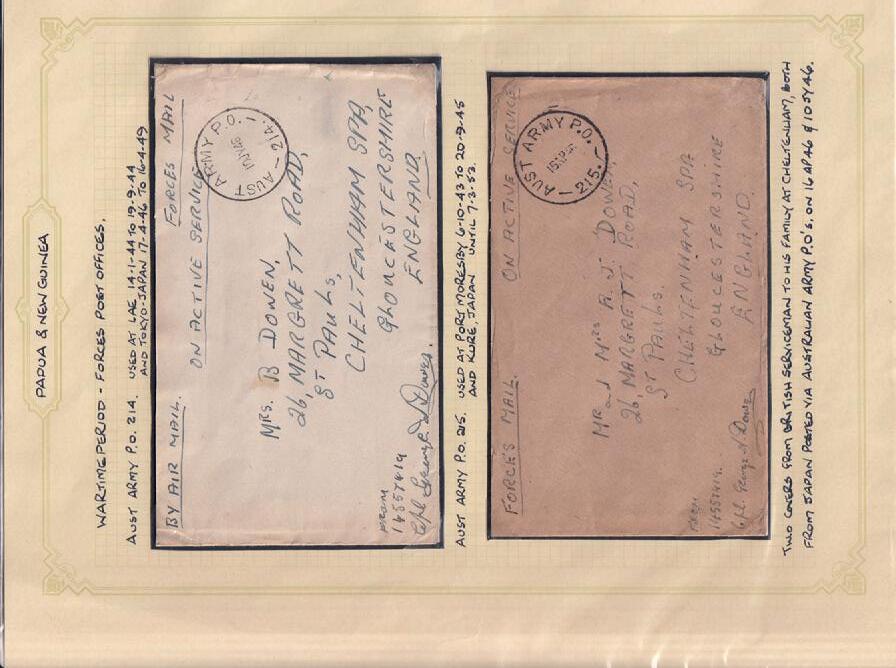 PAPUA & NEW GUINEA
WARTIME PERIOD - FORCES POST OFFICES.
AUST ARMY P.O. 214. USED AT LAE 14-11-44 TO 19-9-44
AND TOKYO-JAPAN 17-4-46 TO 16-4-49
BY AIR MAIL. FORCES MAIL
ON ACTIVE SERVICE
AUST ARMY P.O. 214.
MRS. B DOWEN,
26, MARGRETT ROAD,
ST PAULS,
CHELTENHAM SPA,
GLOUCESTERSHIRE
ENGLAND
FROM
14557419
Cpl
AUST ARMY P.O. 215. USED AT PORT MORESBY 6-10-43 TO 20-9-45
AND KURE, JAPAN UNTIL 7-3-53.
FORCES MAIL. ON ACTIVE SERVICE
AUST ARMY P.O. 215.
MR and MRS R.J. DOWEN,
26, MARGRETT ROAD,
ST PAULS.
CHELTENHAM SPA
GLOUCESTERSHIRE
ENGLAND.
FROM
14557419.
Cpl. George
TWO COVERS FROM BRITISH SERVICEMAN TO HIS FAMILY AT CHELTENHAM, BOTH
FROM JAPAN POSTED VIA AUSTRALIAN ARMY P.O's, ON 16 AP 46 & 10 JY 46.